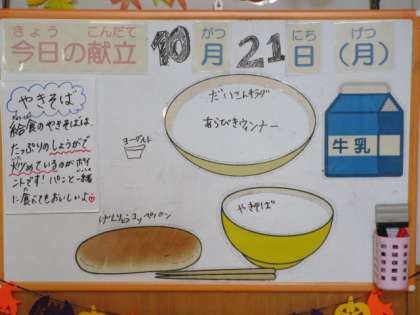 きょう こんだて がつ にち げつ
今日の献立 10月21日(月)
やきそば
給食のやきそばは、
たっぷりのしょうがで
炒めているのがポイ
ントです！パンと一緒
に食べてもおいしいよ
ヨーグルト
だいこんサラダ
あらびきウィンナー
牛乳
げんりょうコッペパン
やきそば